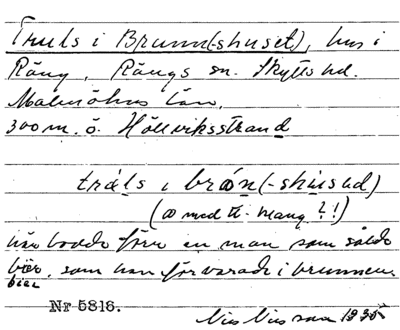 Truls i Brunn(-shuset), hus i
Räng, Rängs sn. Skytts hd.
Malmöhus län.
300 m. ö. Höllviksstrand
tráls i brøn(-shúsəd)
(ø med tl. mang ?!)
här bodde förr en man som sålde
bier, som han förvarade i brunnen.
bier
Nr 5816.
Nils Nilsson 1935